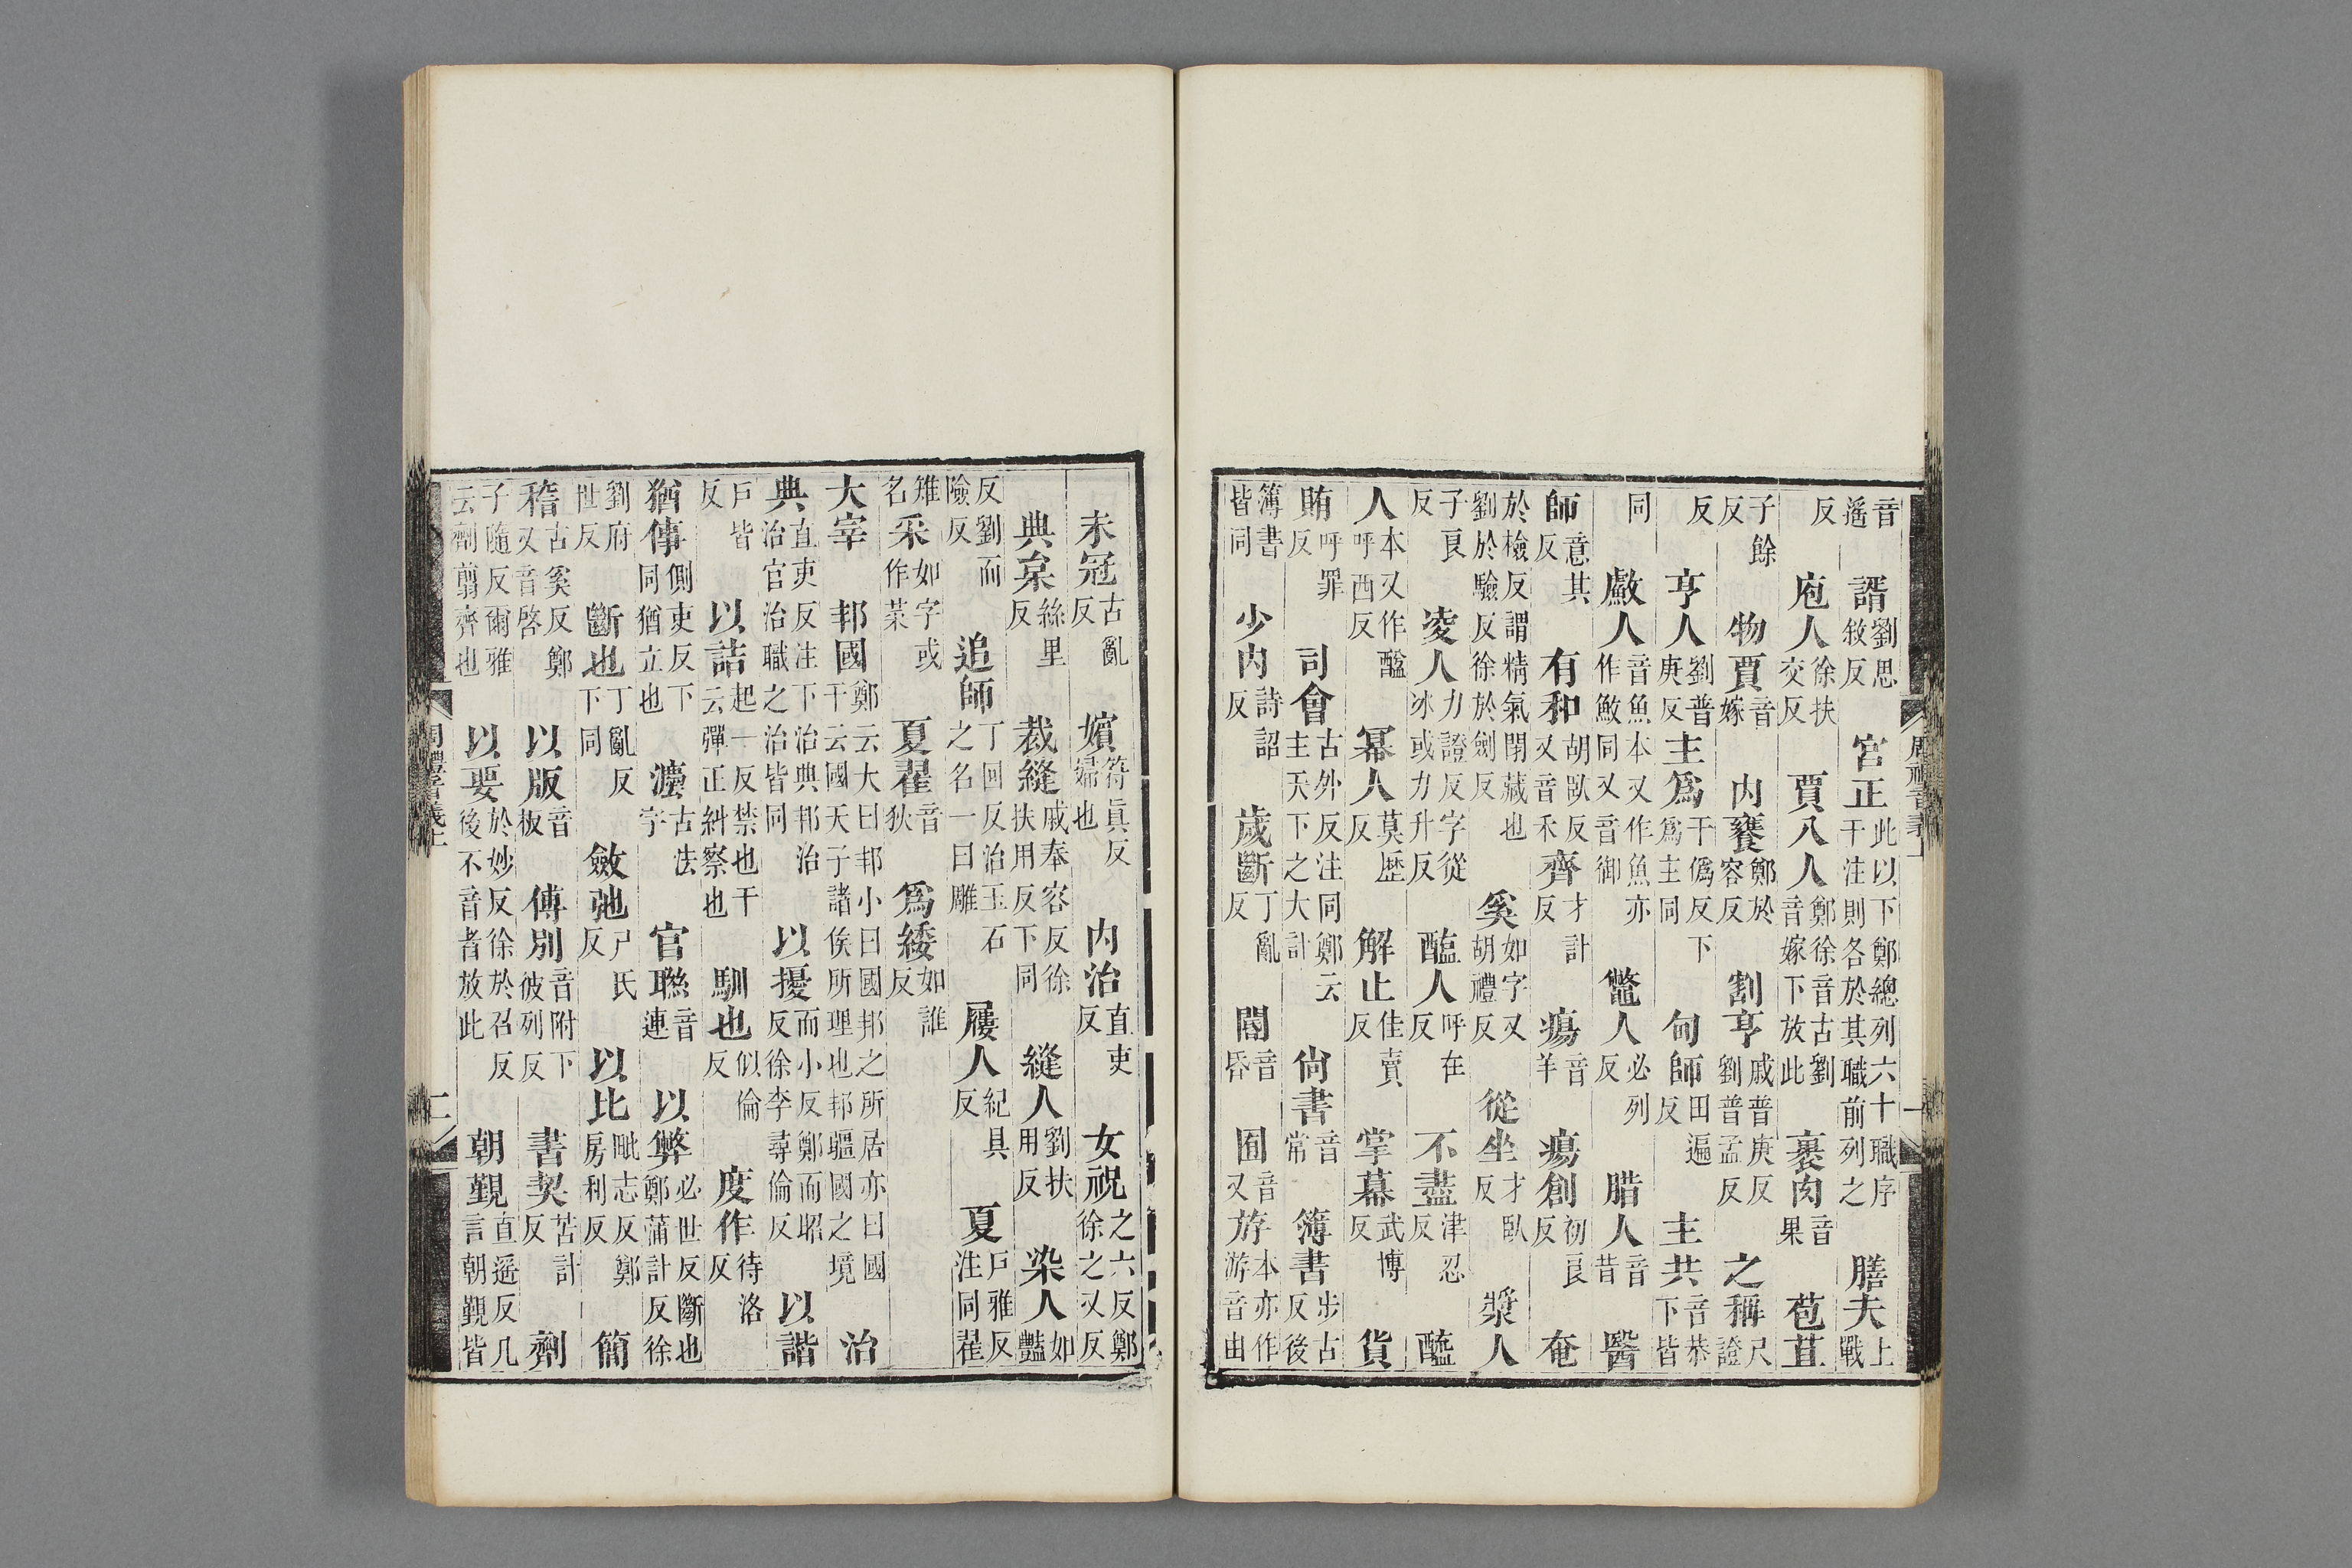 音遥諝劉思敘反宮正此以下鄭總列六十職序干注則各於其職前列之膳夫上戰
反庖人徐扶交反賈八人鄭徐音古劉音嫁下放此裹肉音果苞苴
子餘反物賈音嫁内饔鄭於容反割亨戚普庚反劉普孟反之稱尺證
反亨人劉普庚反主爲干僞反下爲主同甸師田遍反主共音恭下皆
同人音魚本又作魚亦作䱷同又音御鼈人必列反腊人音昔醫
師意其反有和胡臥反又音禾齊才計反瘍音羊瘍創初良反奄
於檢反謂精氣閉藏也劉於驗反徐於劍反奚如字又胡禮反從坐才臥反漿人
子良反凌人力證反字從冰或力升反醢人呼在反不盡津忍反醯
人本又作呼西反冪人莫歷反解止佳賣反掌幕武博反貨
賄呼罪反司會古外反注同鄭云主天下之大計尚書音常簿書步古反後
簿書皆同少内詩詔反歲斷丁亂反閽音昏囿音又斿本亦作游音由
未冠古亂反嬪符眞反婦也内治直吏反女祝之六反鄭徐之又反
典枲絲里反裁縫戚奉容反徐扶用反下同縫人劉扶用反染人如豔
反劉而險反追師丁回反治玉石之名一曰雕屨人紀具反夏戶雅反注同翟
雉名采如字或作菜夏翟音狄爲緌如誰反
大宰邦國鄭云大曰邦小曰國邦之所居亦曰國干云國天子諸侯所理也邦疆國之境治
典直吏反注下治典邦治治官治職之治皆同以擾而小反鄭而昭反徐李尋倫反以諧
戶皆反以詰起一反禁也干云彈正糾察也馴也似倫反度作待洛反
猶倳側吏反下同猶立也灋古法字官聯音連以弊必世反斷也鄭蒲計反徐
劉府世反斷也丁亂反下同斂弛尸氏反以比毗志反鄭房利反簡
稽古奚反鄭又音啓以版音板傅別音附下彼列反書契苦計反劑
子隨反爾雅云劑翦齊也以要於妙反徐於召反後不音者放此朝覲直遥反几言朝覲皆
周禮音義上
二